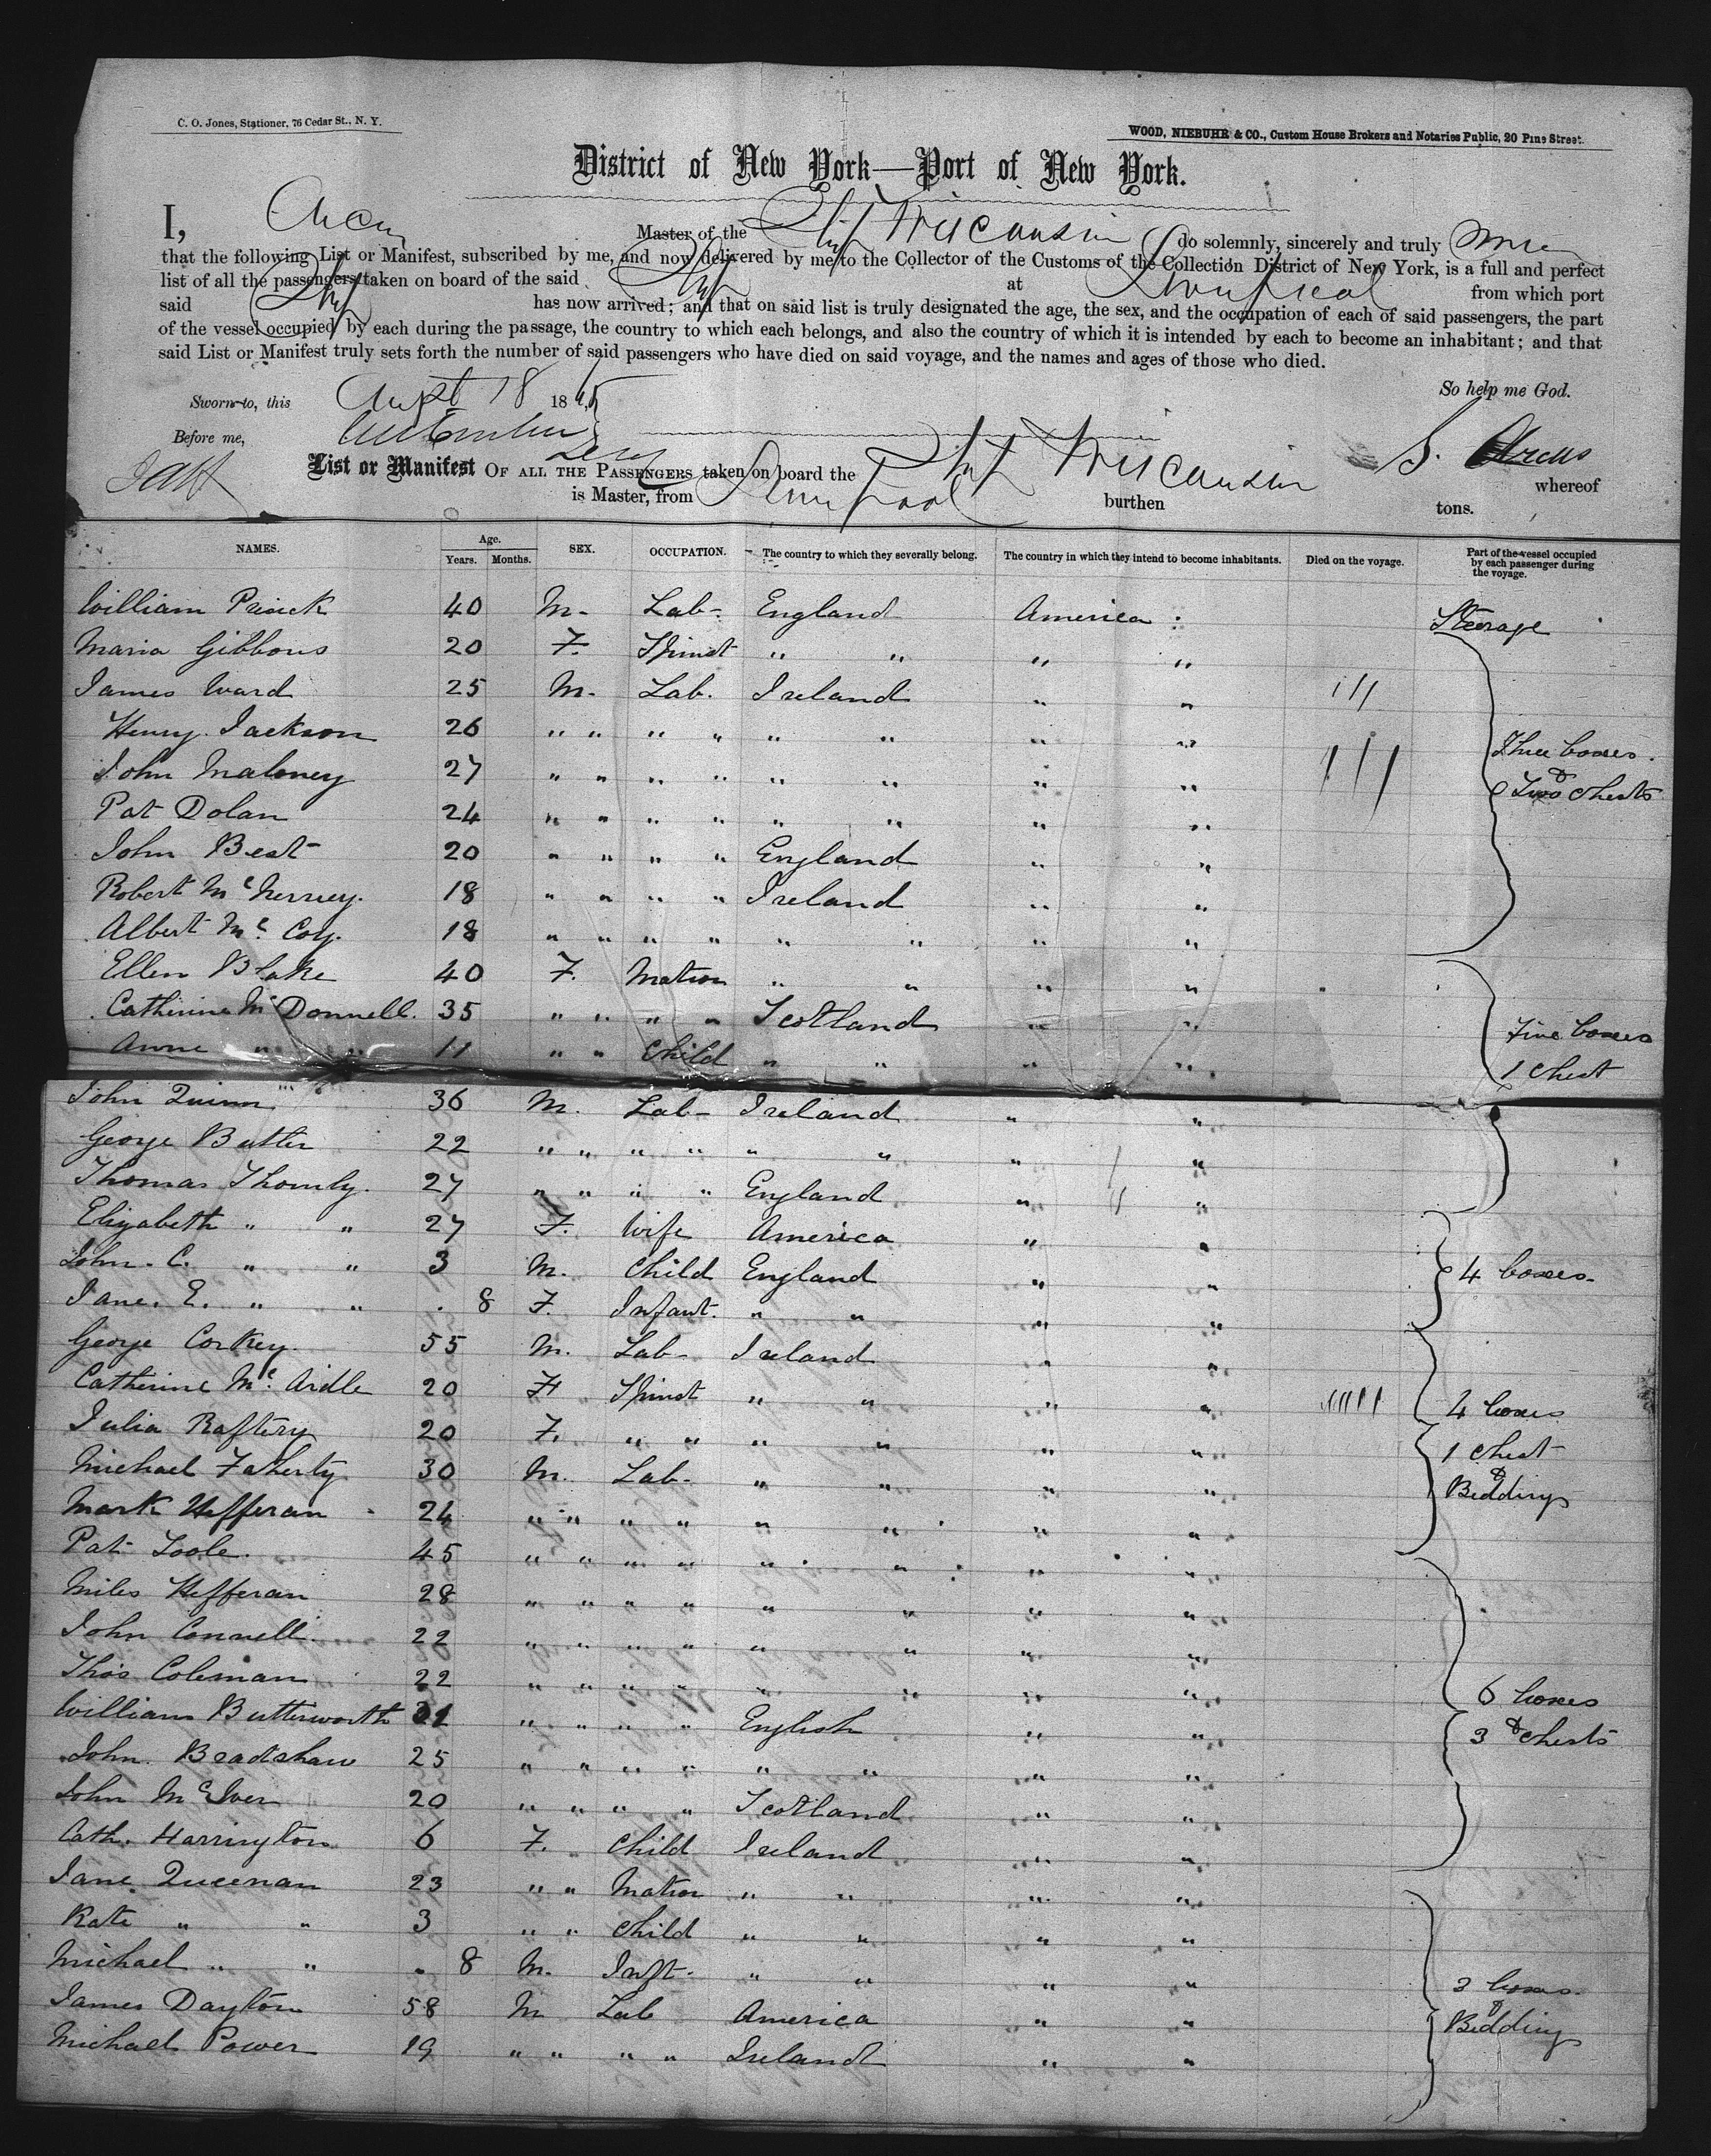 C. O. Jones, Stationer, 76 Cedar St., N. Y.
WOOD, NIEBUHR & CO., Custom House Brokers and Notaries Public, 20 Pine Street.
District of New York—Port of New York.
I, Master of the Ship Wisconsin do solemnly, sincerely and truly
that the following List or Manifest, subscribed by me, and now delivered by me to the Collector of the Customs of the Collection District of New York, is a full and perfect
list of all the passengers taken on board of the said Ship at Liverpool from which port
said Ship has now arrived; and that on said list is truly designated the age, the sex, and the occupation of each of said passengers, the part
of the vessel occupied by each during the passage, the country to which each belongs, and also the country of which it is intended by each to become an inhabitant; and that
said List or Manifest truly sets forth the number of said passengers who have died on said voyage, and the names and ages of those who died.
So help me God.
Sworn to, this Augst 18 18
Before me,
List or Manifest OF ALL THE PASSENGERS taken on board the Ship Wisconsin whereof
is Master, from Liverpool burthen tons.
NAMES. Age. Years. Months. SEX. OCCUPATION. The country to which they severally belong. The country in which they intend to become inhabitants. Died on the voyage. Part of the vessel occupied by each passenger during the voyage.
William 40 M. Lab. England America Steerage
Maria Gibbons 20 F. Spinst " " " "
James Ward 25 M. Lab. Ireland " "
Henry Jackson 26 " " " " " " " "
John Maloney 27 " " " " " " " " Three boxes
Pat Dolan 24 " " " " " " " " & Two Chests
John Best 20 " " " " England " "
Robert McNerney 18 " " " " Ireland " "
Albert Mc. Coy. 18 " " " " " " " "
Ellen Blake 40 F. Matron " " " "
Catherine McDonnell. 35 " " " " Scotland " " Five boxes
Anne " " 11 " " Child " " " " 1 Chest
John Quinn 36 M. Lab- Ireland " "
George Butler 22 " " " " " " " "
Thomas Thornly. 27 " " " " England " "
Elizabeth " " 27 F. Wife America " "
John. C. " " 3 M. Child England " " 4 boxes.
Jane. E. " " . 8 F. Infant. " " " "
George Corkey. 55 M. Lab- Ireland " "
Catherine Mc. Ardle 20 F Spinst " " " " 4 boxes
Julia Raftery 20 F. " " " " " " 1 Chest
Michael Faherty 30 M. Lab. " " " " & Bedding
Mark Hefferan 24 " " " " " " " "
Pat Toole. 45 " " " " " " " "
Miles Hefferan 28 " " " " " " " "
John Connell. 22 " " " " " " " "
Thos Coleman 22 " " " " " " " " 6 boxes
William Butterworth 21 " " " " English " " & 3 Chests
John Bradshaw 25 " " " " " " " "
John McIver 20 " " " " Scotland " "
Cath. Harrington 6 F. Child Ireland " "
Jane Queenan 23 " " Matron " " " "
Kate " " 3 " " Child " " " "
Michael " " . 8 M. Inft. " " " " 3 boxes.
James Dayton 58 M Lab America " " & Bedding
Michael Power 19 " " " " Ireland " "